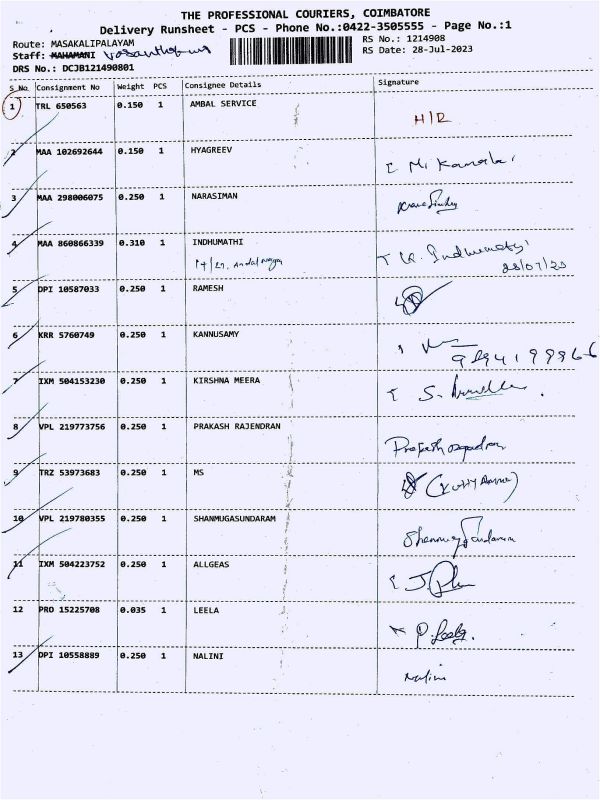 THE PROFESSIONAL COURIERS, COIMBATORE
Delivery Runsheet - PCS - Phone No.:0422-3505555 - Page No.:1
Route: MASAKALIPALAYAM
RS No.: 1214908
Staff: MAHAMANI
RS Date: 28-Jul-2023
DRS No.: DCJB121490801
S No. Consignment No Weight PCS Consignee Details Signature
1 TRL 650563 0.150 1 AMBAL SERVICE
H/R
2 MAA 102692644 0.150 1 HYAGREEV
3 MAA 298006075 0.250 1 NARASIMAN
4 MAA 860866339 0.310 1 INDHUMATHI
Indhumathi
28/07/23
5 DPI 10587033 0.250 1 RAMESH
6 KRR 5760749 0.250 1 KANNUSAMY
7 IXM 504153230 0.250 1 KIRSHNA MEERA
8 VPL 219773756 0.250 1 PRAKASH RAJENDRAN
9 TRZ 53973683 0.250 1 MS
10 VPL 219780355 0.250 1 SHANMUGASUNDARAM
11 IXM 504223752 0.250 1 ALLGEAS
12 PRO 15225708 0.035 1 LEELA
P. Leela.
13 DPI 10558889 0.250 1 NALINI
Nalini